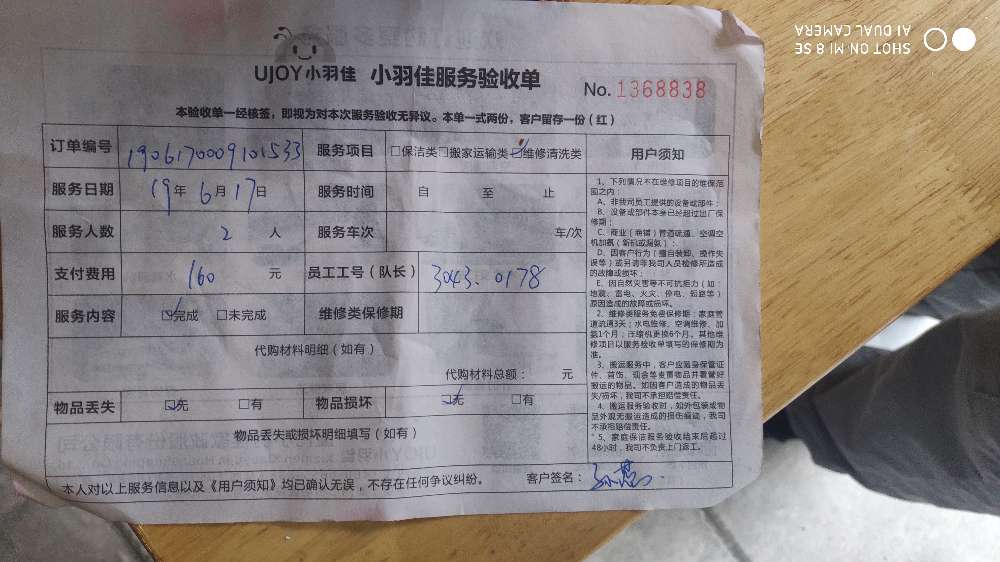 UJOY小羽佳 小羽佳服务验收单
No. 1368838
本验收单一经核签，即视为对本次服务验收无异议。本单一式两份，客户留存一份（红）
订单编号 1906170009101533 服务项目 □保洁类□搬家运输类☑维修清洗类
服务日期 19年6月17日 服务时间 自 至 止
服务人数 2 人 服务车次 车/次
支付费用 160 元 员工工号（队长） 3043.0178
服务内容 ☑完成 □未完成 维修类保修期
代购材料明细（如有）
代购材料总额： 元
物品丢失 ☑无 □有 物品损坏 ☑无 □有
物品丢失或损坏明细填写（如有）
本人对以上服务信息以及《用户须知》均已确认无误，不存在任何争议纠纷。 客户签名：
用户须知
1、下列情况不在维修项目的维保范
围之内：
A、非我司员工提供的设备或部件；
B、设备或部件本身已经超过出厂保
修期；
C、商业（商铺）管道疏通、空调空
机加氨（新机或漏氨）；
D、因客户行为（擅自装卸、操作失
误等）或另请非我司人员检修所造成
的故障或损坏；
E、因自然灾害等不可抗拒力（如：
地震、雷电、火灾、停电、短路等）
原因造成的故障或损坏。
2、维修类服务免费保修期：家庭管
道疏通3天；水电维修、空调维修、加
氨1个月；压缩机更换6个月。其他维
修项目以服务验收单填写的保修期为
准。
3、搬运服务中，客户应随身保管证
件、首饰、现金等贵重物品并看管好
搬运的物品。如因客户造成的物品丢
失/损坏，我司不承担赔偿责任。
4、搬运服务验收时，如外包装或物
品外观无搬运造成的损伤痕迹，我司
不承担赔偿责任。
5、家庭保洁服务验收结束后超过
48小时，我司不负责上门返工。
SHOT ON MI 8 SE
AI DUAL CAMERA